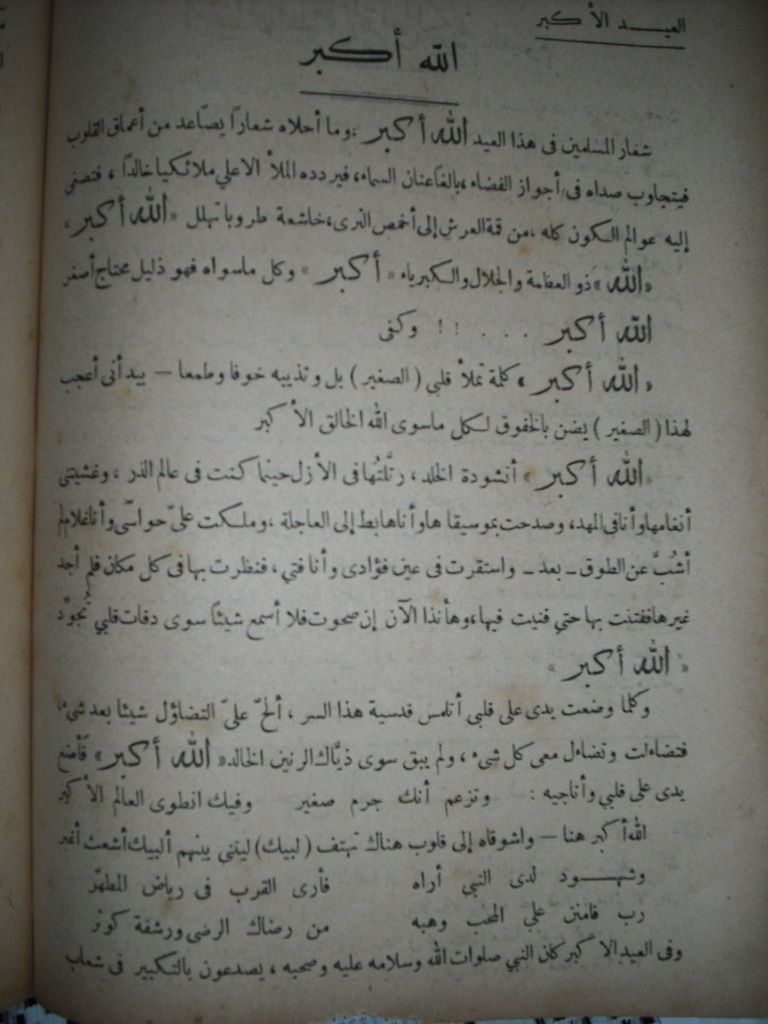 العيد الأكبر
الله أكبر
شعار المسلمين فى هذا العيد الله أكبر ، وما أحلاه شعارا يصّاعد من أعماق القلوب
فيتجاوب صداه فى أجواز الفضاء ، بالغا عنان السماء ، فيردده الملأ الاعلي ملائكيا خالدا ، فتصغى
إليه عوالم الكون كله ، من قمة العرش إلى أخمص الثرى ، خاشعة طروبا تهلل « الله أكبر ،
« الله » ذو العظامة والجلال والكبرياء « أكبر » وكل ماسواه فهو ذليل محتاج أصغر
الله أكبر . . . . !! وكنى
« الله أكبر » كلمة تملأ قلبي ( الصغير ) بل وتذيبه خوفا وطمعا — بيد أنى أعجب
لهذا ( الصغير ) يضن بالخفوق لكل ماسوى الله الخالق الأكبر
« الله أكبر » أنشودة الخلد ، رتَّلتُها فى الأزل حينما كنت فى عالم الذر ، وغشيتنى
أنغامها وأنا فى المهد ، وصدحت بموسيقاها وأنا هابط إلى العاجلة ، وملكت علىّ حواسّى وأنا غلام لم
أشُبَّ عن الطوق ـ بعد ـ واستقرت فى عين فؤادى وأنا فتي ، فنظرت بها فى كل مكان فلم أجد
غيرها ففتنت بها حتي فنيت فيها ، وهأنذا الآن إن صحوت فلا أسمع شيئا سوى دقات قلبي تُجوّد
« الله أكبر »
وكلما وضعت يدى على قلبى أتلمس قدسية هذا السر ، ألحّ علىّ التضاؤل شيئا بعد شىء ،
فتضاءلت وتضاءل معى كل شىء ، ولم يبق سوى ذيّاك الرنين الخالد « الله أكبر » فأضع
يدى على قلبي وأناجيه : وتزعم أنك جرم صغير وفيك انطوى العالم الأكبر
الله أكبر هنا — واشوقاه إلى قلوب هناك تهتف ( لبيك ) ليتنى بينهم ألبيك أشعث أغبر
وشهود لدى النبي أراه فأرى القرب فى رياض المطهّر
رب فامنن علي المحب وهبه من رضاك الرضى ورشفة كوثر
وفى العيد الاكبر كان النبي صلوات الله وسلامه عليه وصحبه ، يصدعون بالتكبير فى شعاب